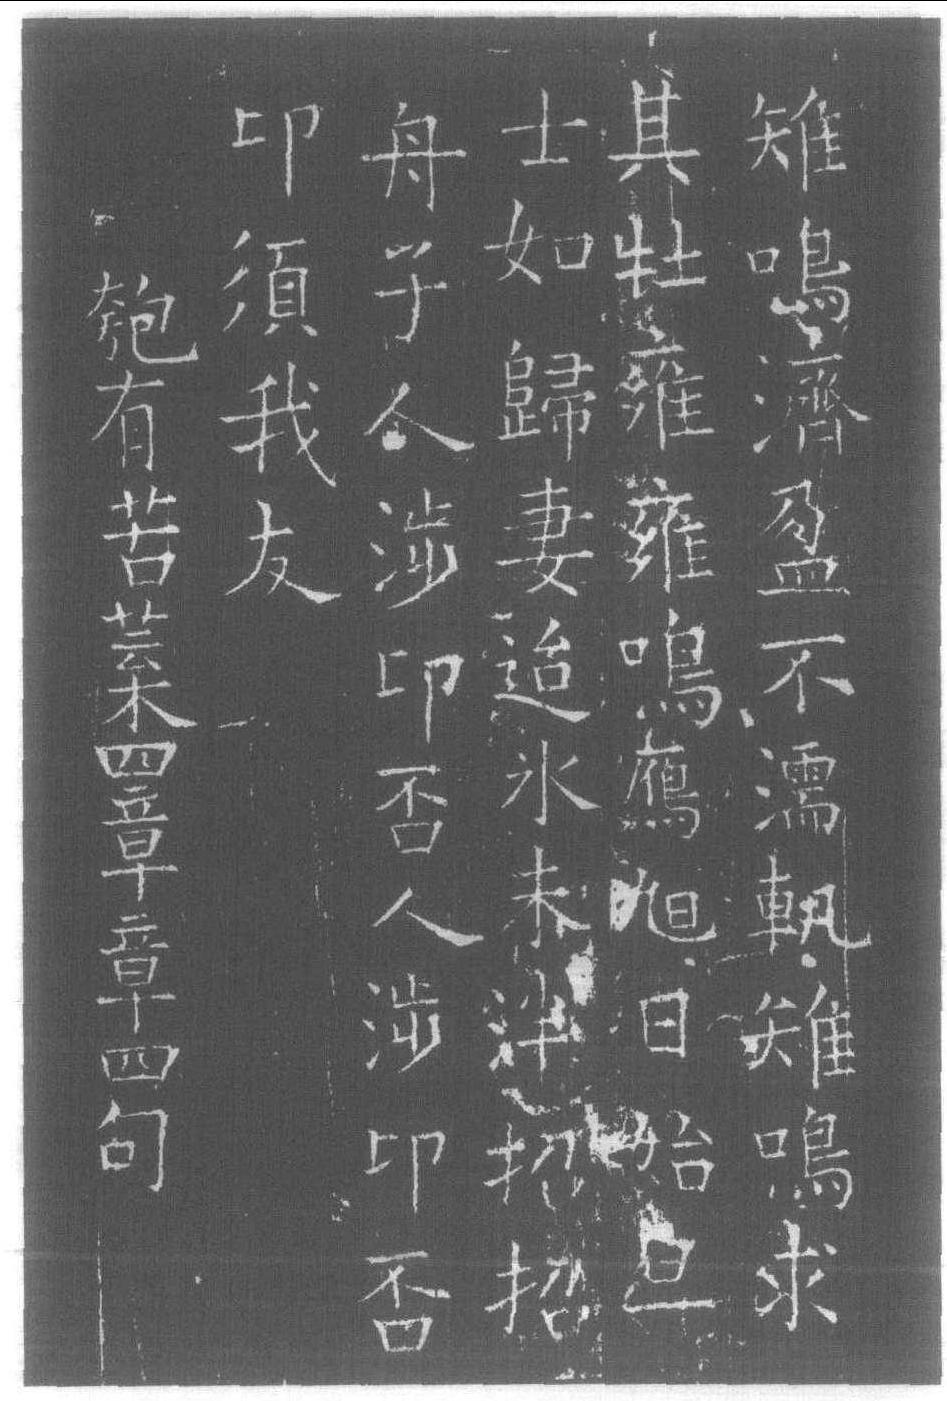 雉鳴濟盈不濡軌雉鳴求
其牡雍雍鳴鴈旭日始旦
士如歸妻迨氷未泮招招
舟子人涉卬否人涉卬否
卬須我友
匏有苦葉四章章四句